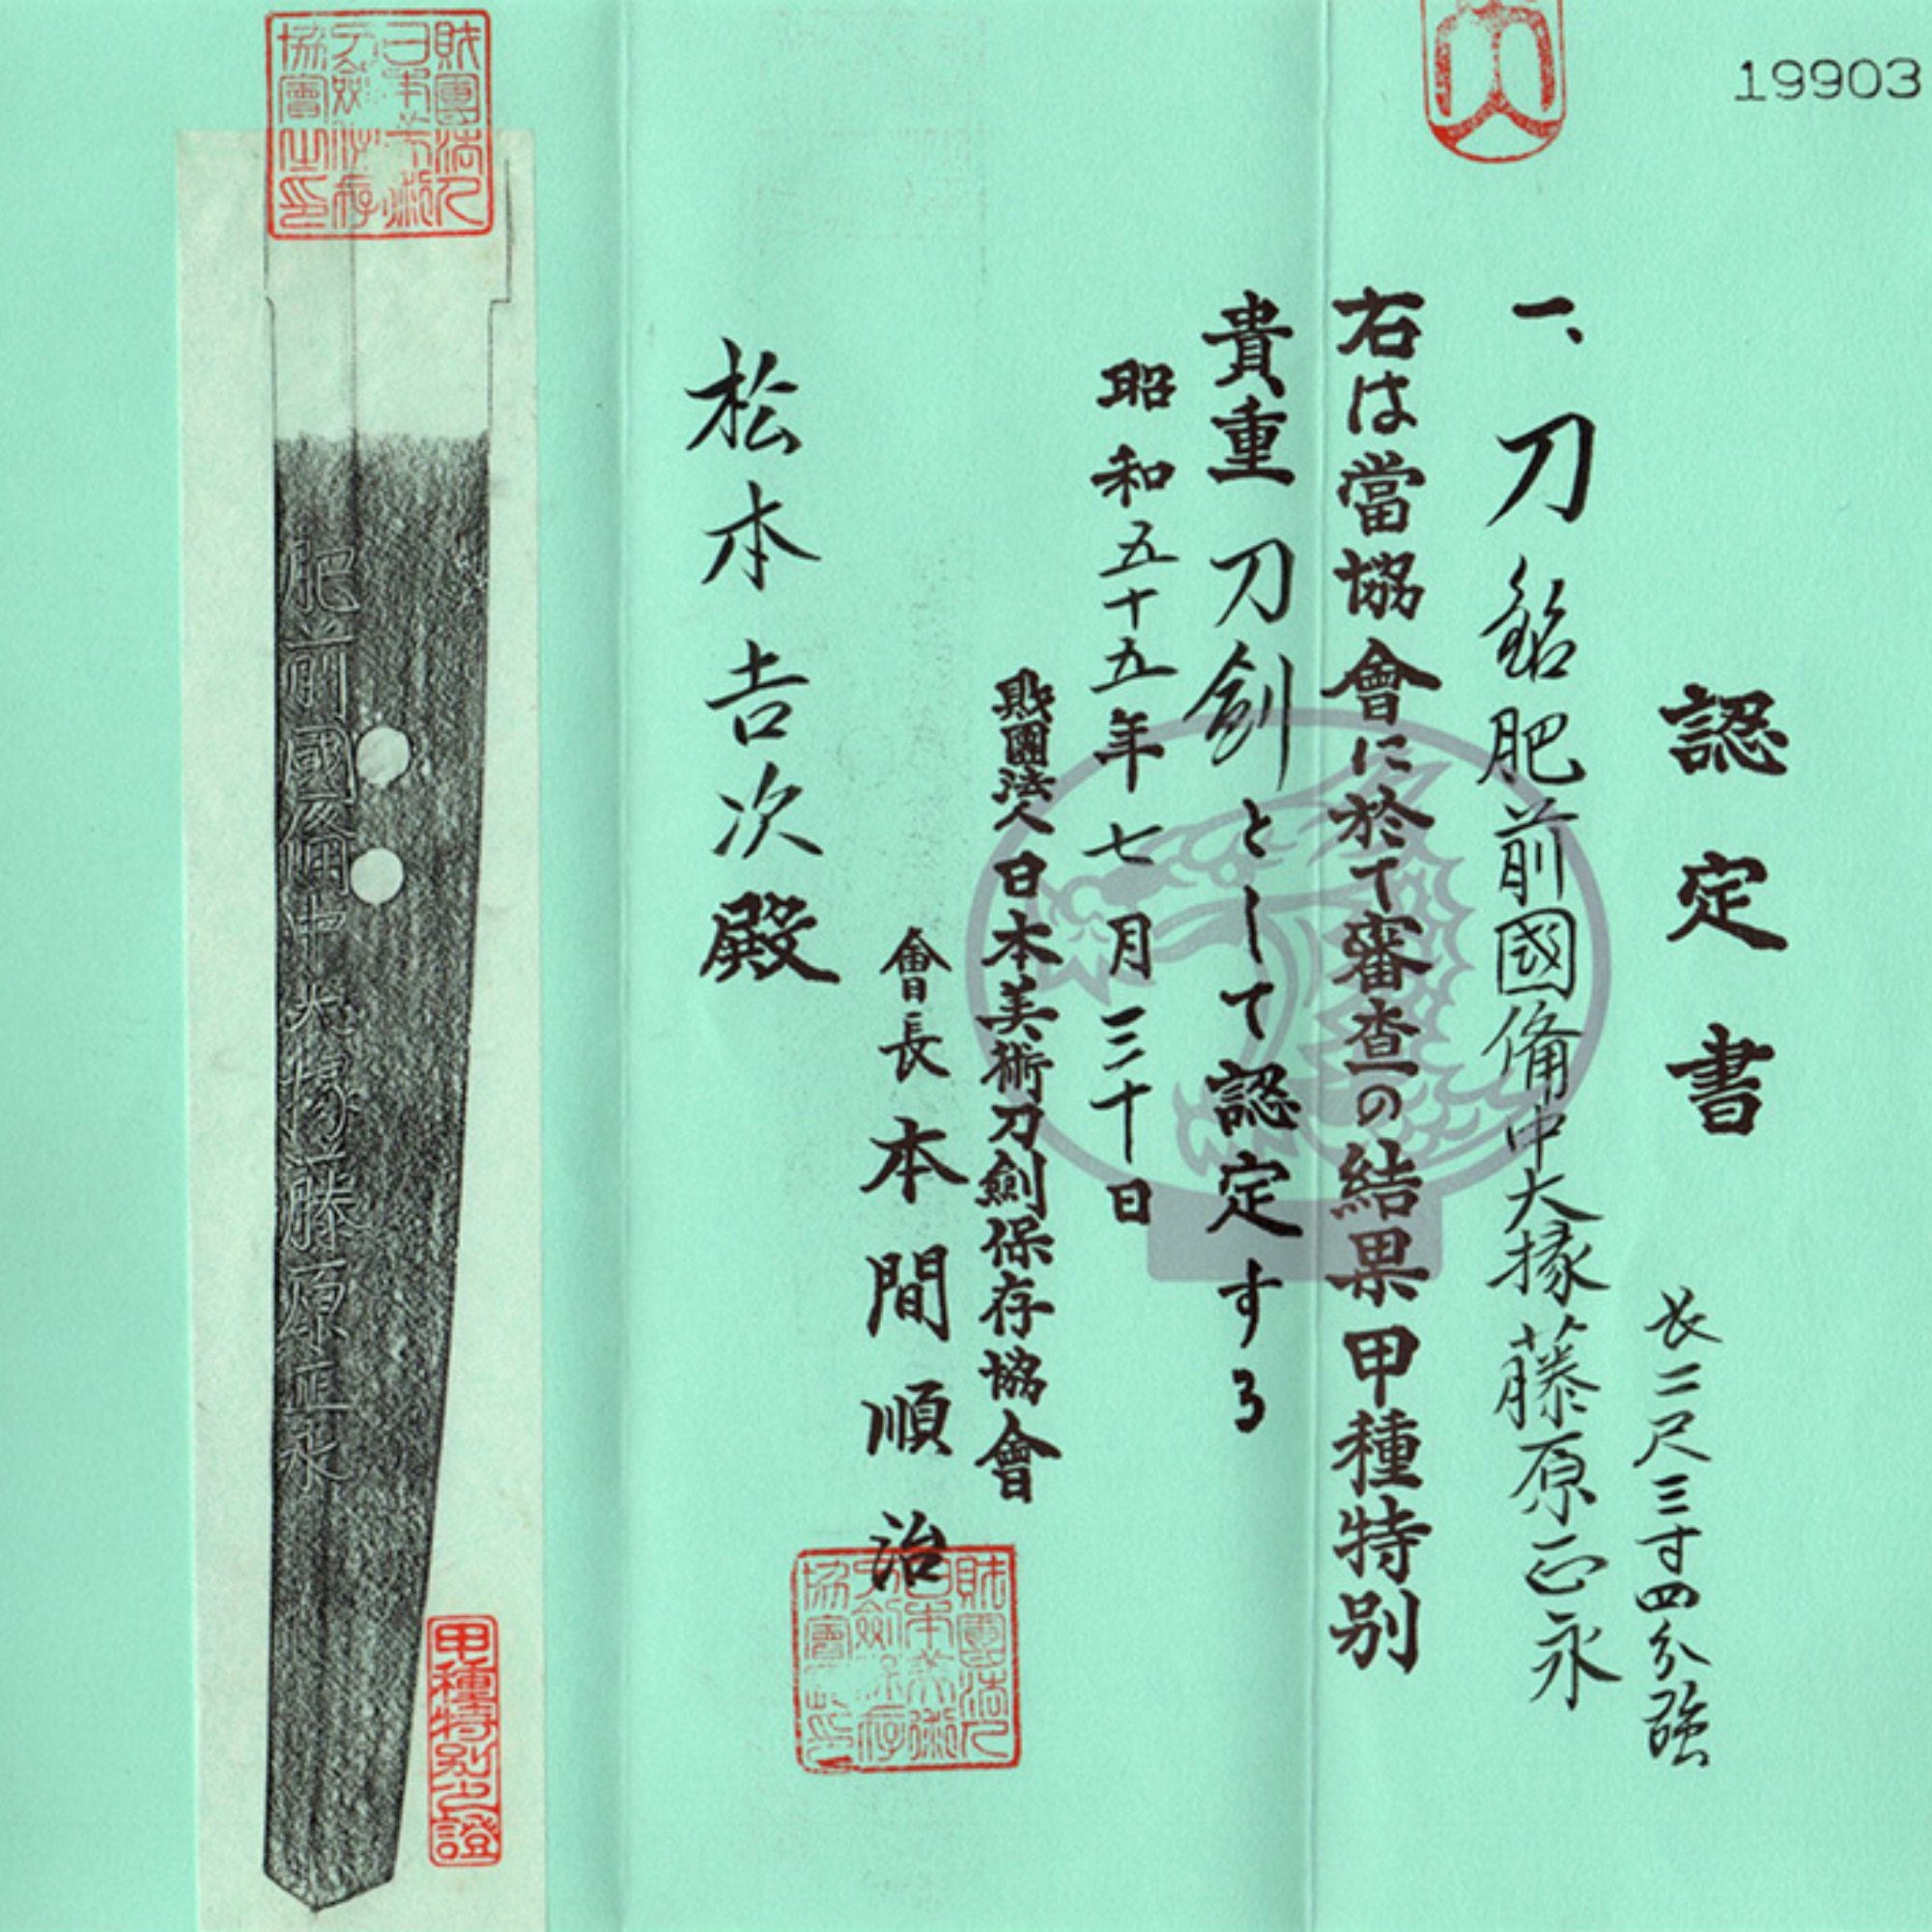 19903
認定書
一、刀 銘 肥前國備中大掾藤原正永
長二尺三寸四分強
右は當協會に於て審査の結果甲種特別
貴重刀剣として認定する
昭和五十五年七月三十日
財團法人日本美術刀劍保存協會
會長 本間順治
松本吉次殿
財團法人日本美術刀劍保存協會之印
肥前國備中大掾藤原正永
甲種特別之證
財團法人日本美術刀劍保存協會之印